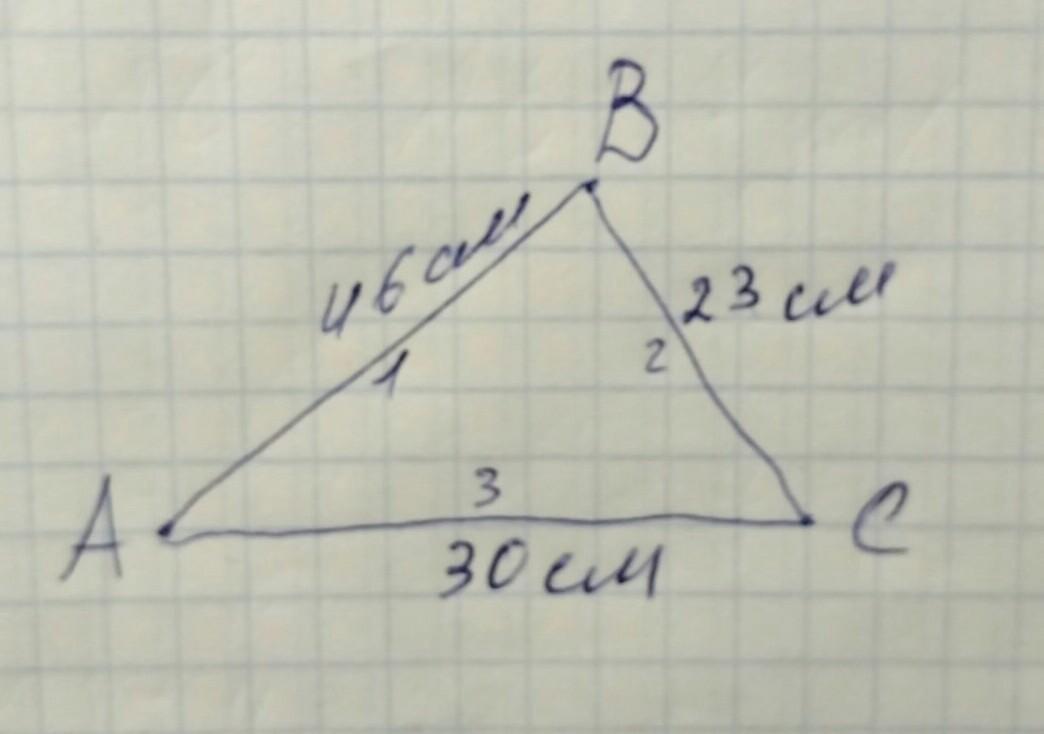 B
46 см
23 см
1
2
3
A
C
30 см